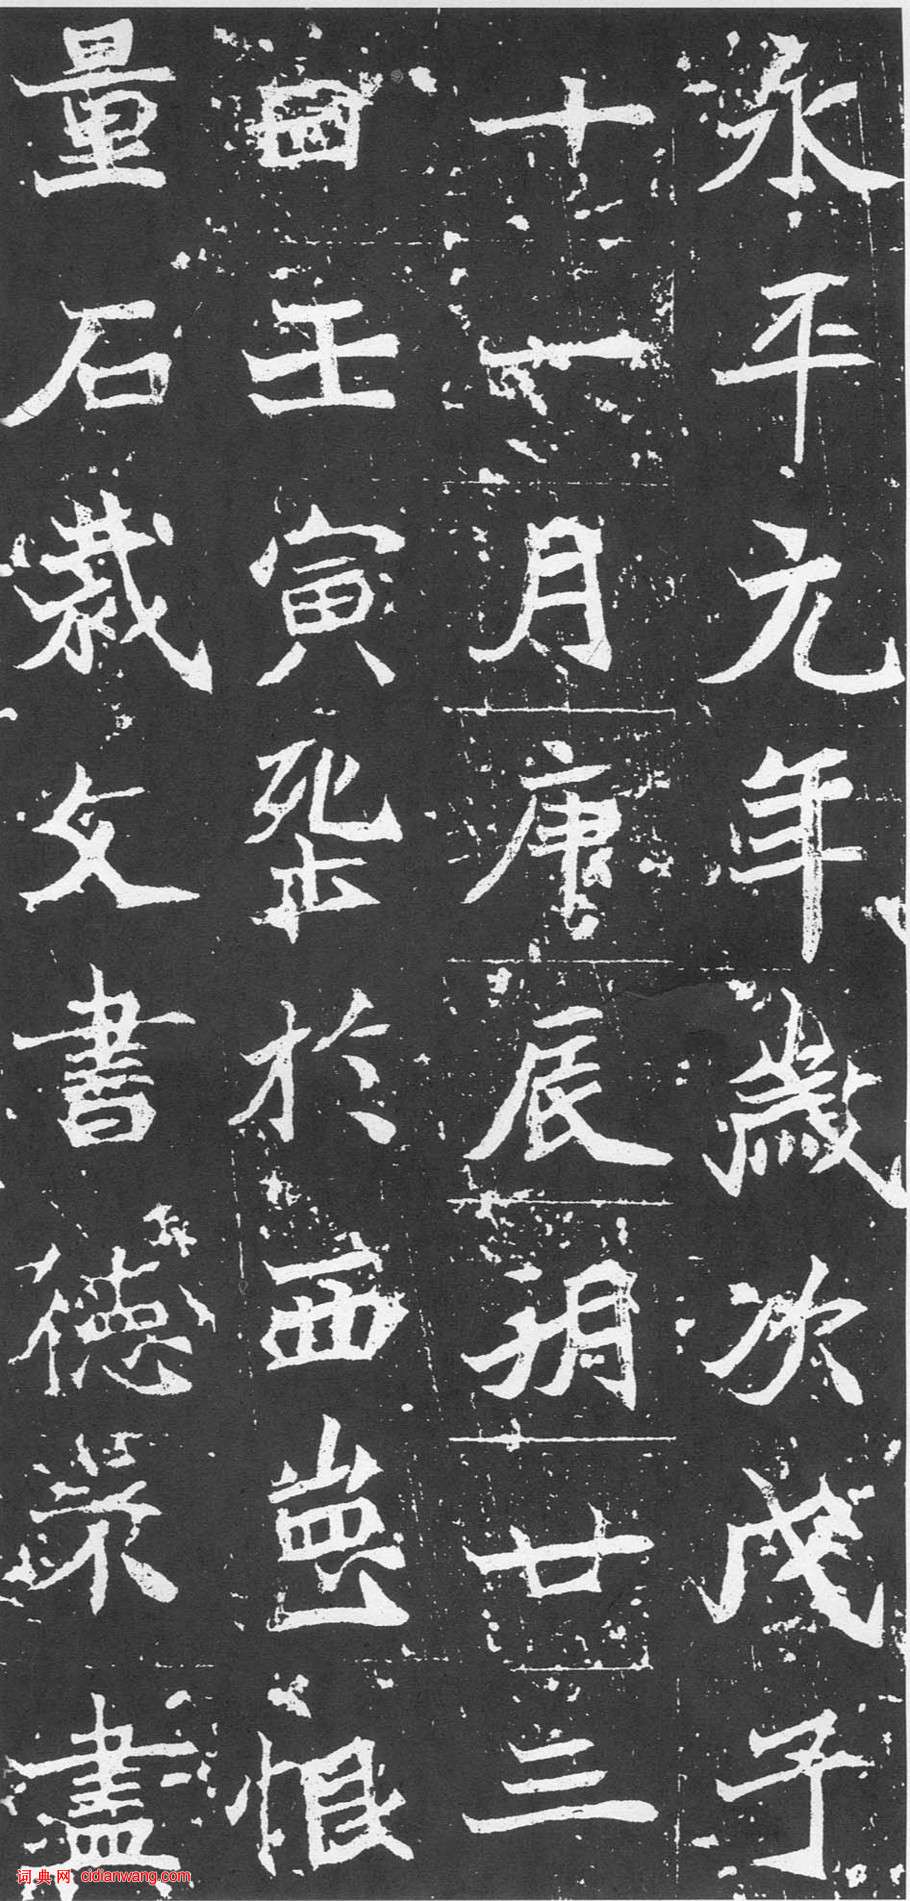 永平元年歲次戊子
十一月庚辰朔廿三
日壬寅葬於西崗恨
量石裁文書德莫盡
词典网 cidianwang.com